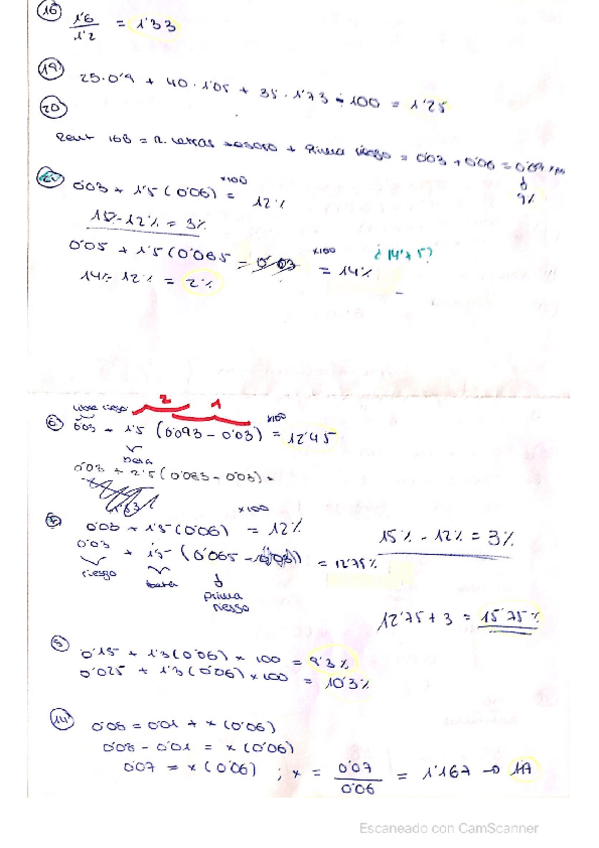 16
1'6 / 1'2 = 1'33
19
25·0'9 + 40·1'05 + 35·1'73 ÷ 100 = 1'25
20
Rent = R. letras tesoro + Prima riesgo = 0'03 + 0'06 =
9%
0'03 + 1'5 (0'06) = x100 12%
15% - 12% = 3%
0'05 + 1'5 (0'065 - 0'03 x100 = 14% ¿14'75?
14% - 12% = 2%
libre riesgo 2 1
6 0'03 + 1'5 (0'093 - 0'03) x100 = 12'45
beta
0'03 + 2'5 (0'083 - 0'03) =
x100
0'03 + 1'5 (0'06) = 12% 15% - 12% = 3%
0'03 + 1'5 (0'065 - 0'03) = 12'75%
riesgo beta prima riesgo
12'75 + 3 = 15'75%
0'15 + 1'3 (0'06) x 100 = 9'3%
0'025 + 1'3 (0'06) x 100 = 10'3%
14 0'08 = 0'01 + x (0'06)
0'08 - 0'01 = x (0'06)
0'07 = x (0'06) ; x = 0'07 / 0'06 = 1'167 → 1'17
Escaneado con CamScanner